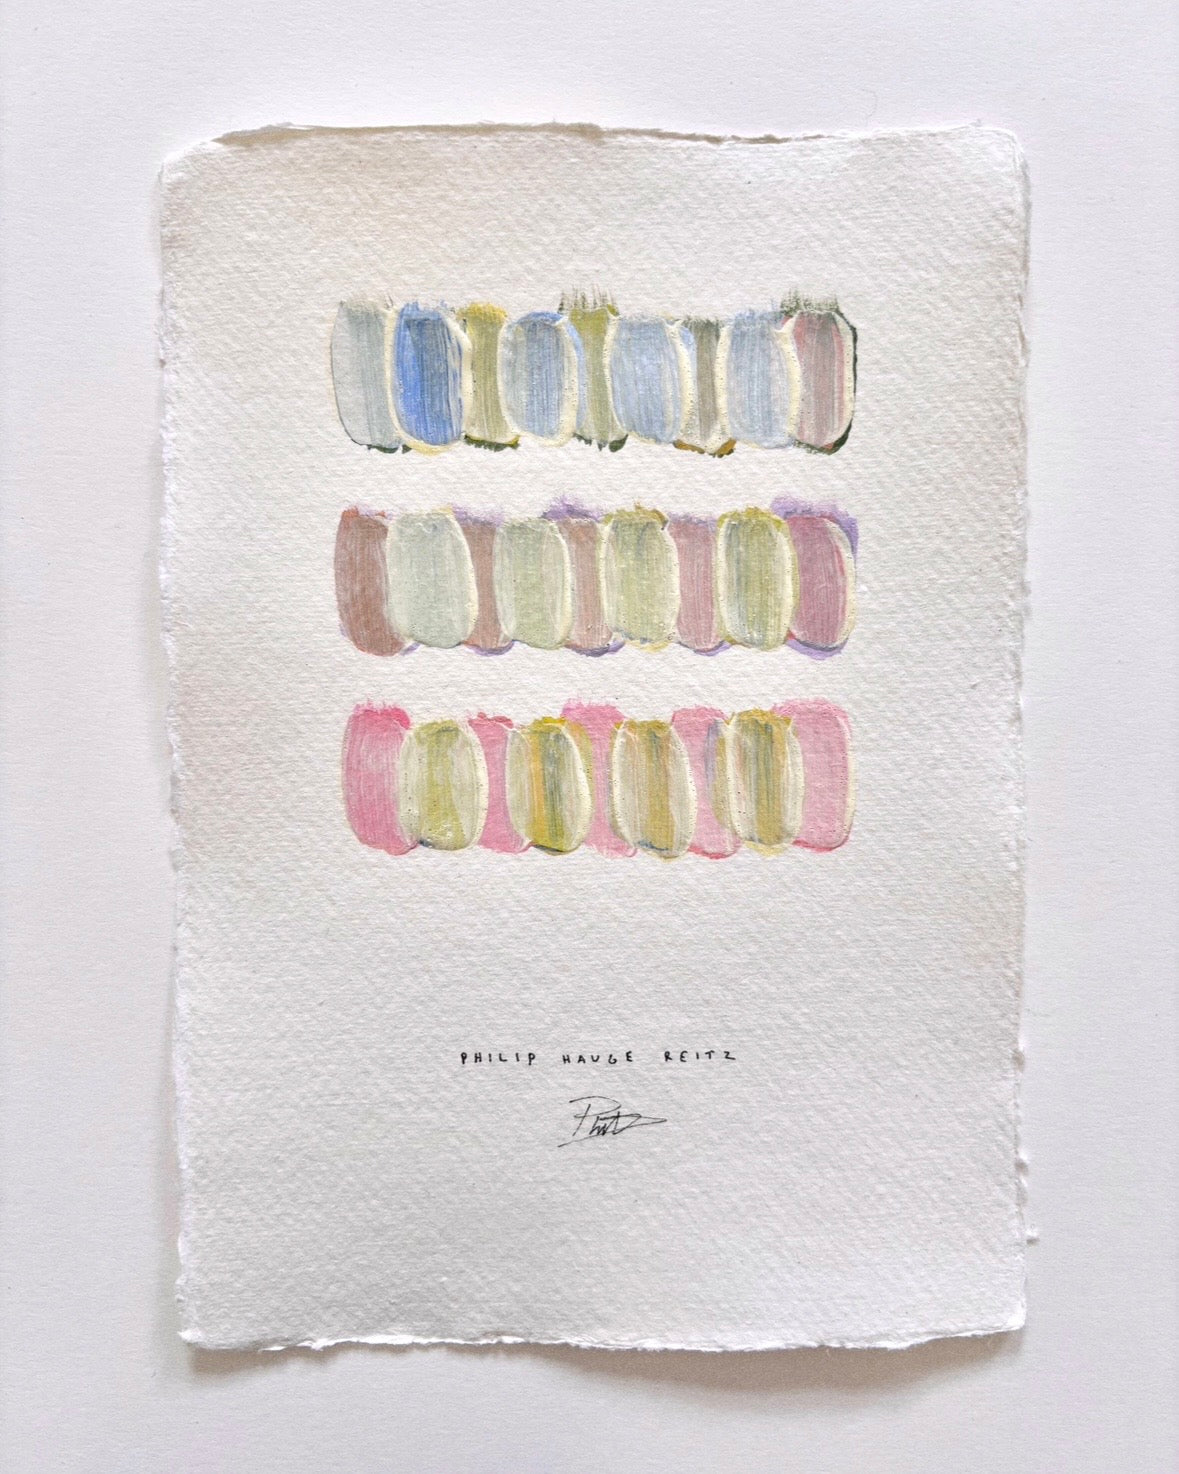 PHILIP HAUGE REITZ